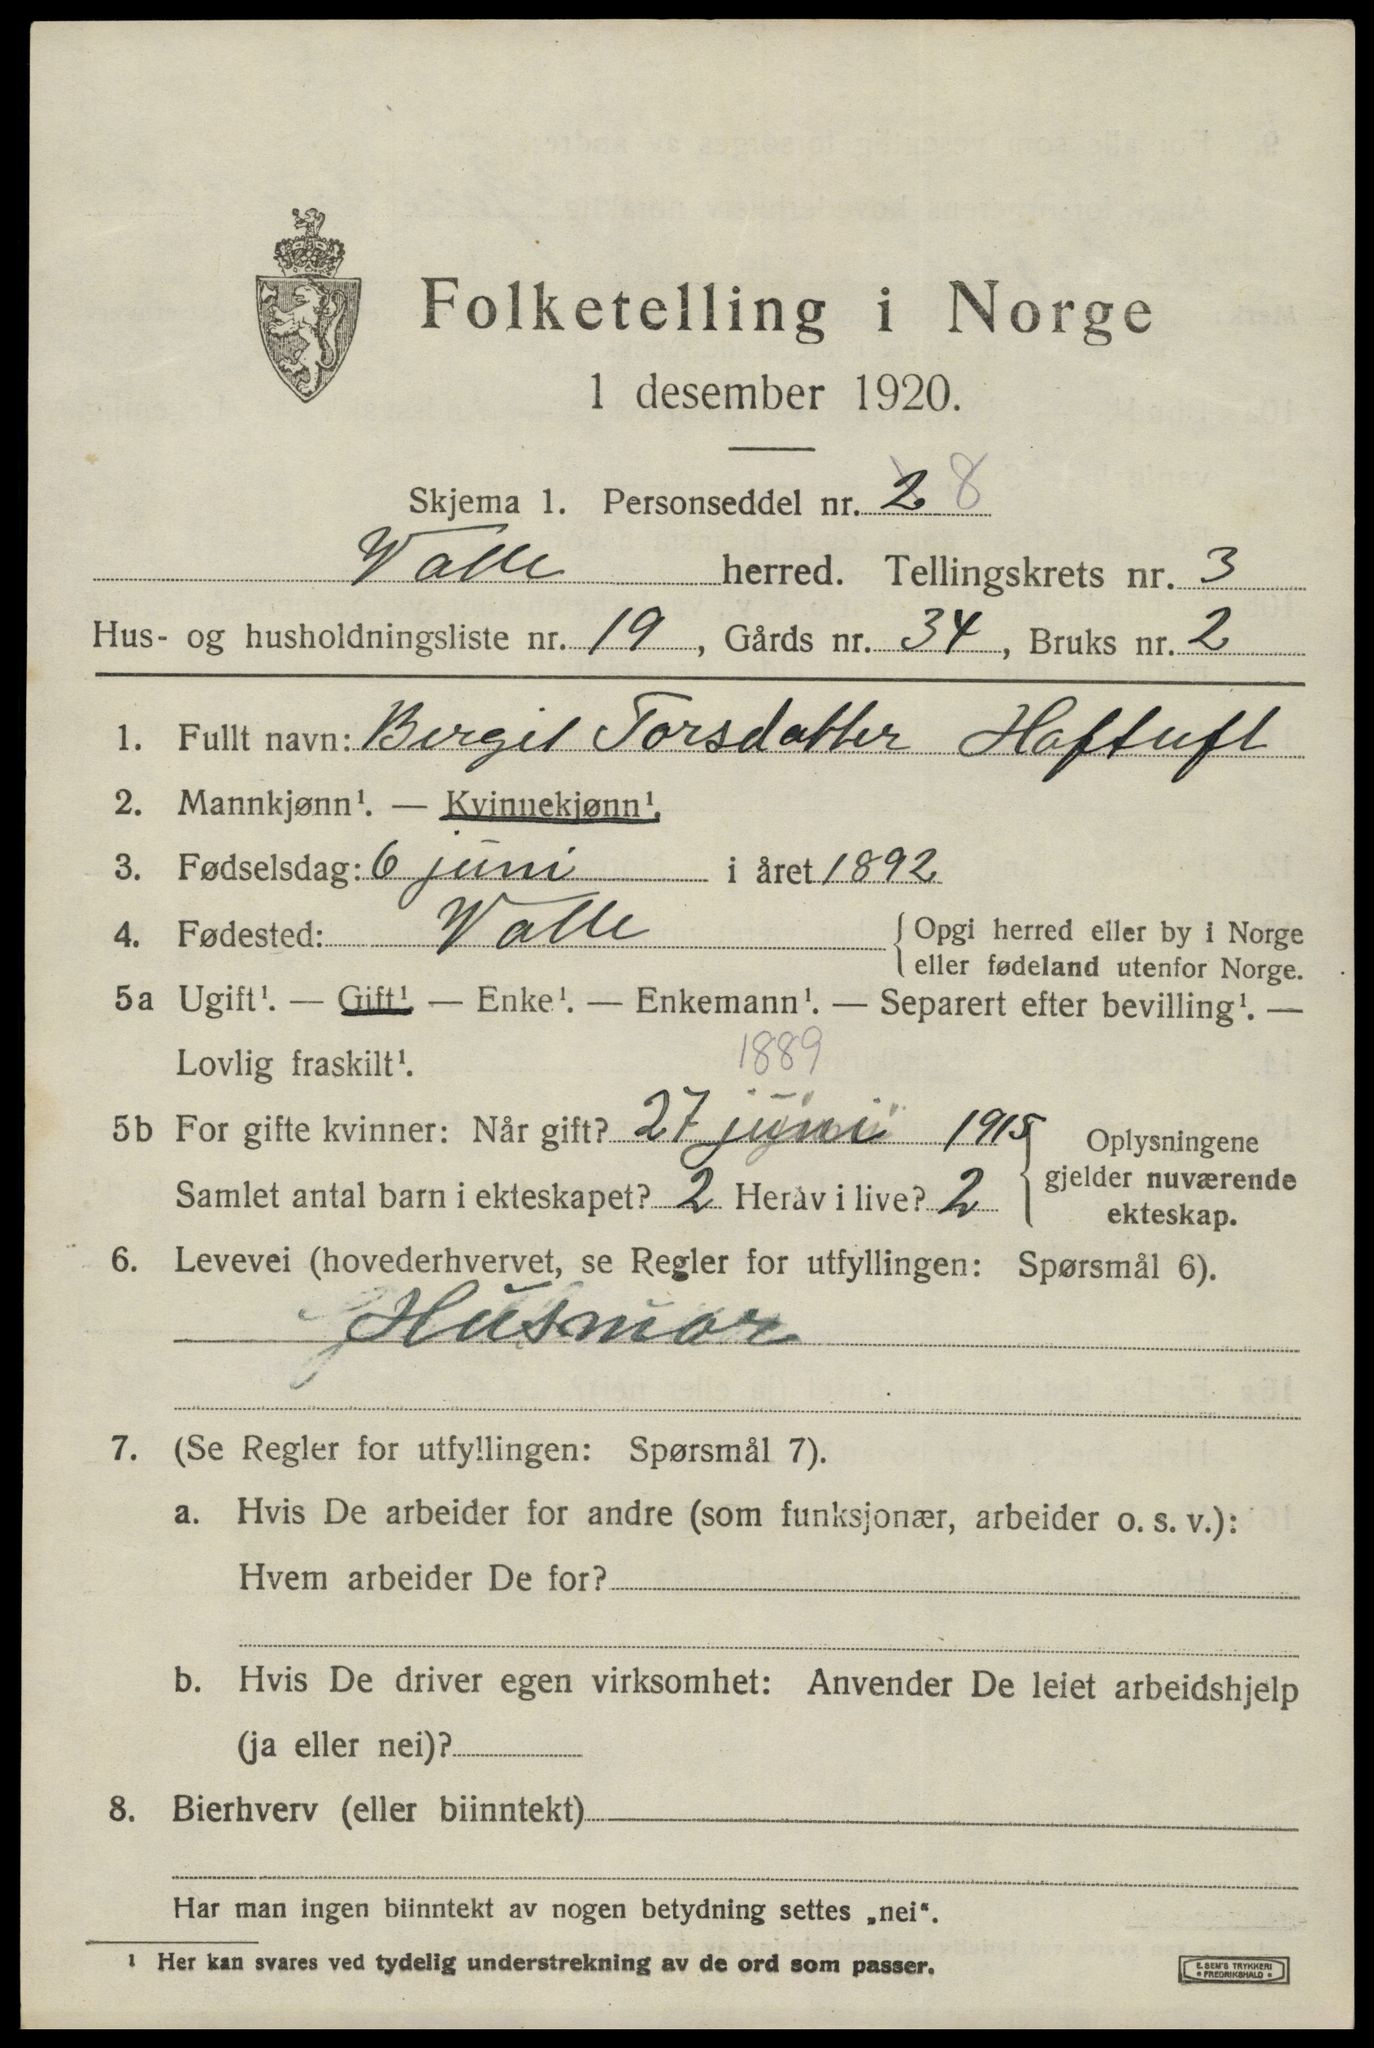 Folketelling i Norge
1 desember 1920.
Skjema 1. Personseddel nr. 2 8
Valle herred. Tellingskrets nr. 3
Hus- og husholdningsliste nr. 19, Gårds nr. 34, Bruks nr. 2
1. Fullt navn: Birgit Torsdatter Haftuft
2. Mannkjønn¹. — Kvinnekjønn¹.
3. Fødselsdag: 6 juni i året 1892
4. Fødested: Valle {Opgi herred eller by i Norge
eller fødeland utenfor Norge.
5a Ugift¹. — Gift¹ — Enke¹. — Enkemann¹. — Separert efter bevilling¹. —
Lovlig fraskilt¹. 1889
5b For gifte kvinner: Når gift? 27 juni 1915
Samlet antal barn i ekteskapet? 2 Herav i live? 2
Oplysningene
gjelder nuværende
ekteskap.
6. Levevei (hovederhvervet, se Regler for utfyllingen: Spørsmål 6).
Husmor
7. (Se Regler for utfyllingen: Spørsmål 7).
a. Hvis De arbeider for andre (som funksjonær, arbeider o. s. v.):
Hvem arbeider De for?
b. Hvis De driver egen virksomhet: Anvender De leiet arbeidshjelp
(ja eller nei)?
8. Bierhverv (eller biinntekt)
Har man ingen biinntekt av nogen betydning settes „nei“.
¹ Her kan svares ved tydelig understrekning av de ord som passer.
E. SEM'S TRYKKERI
• FREDRIKSHALD •